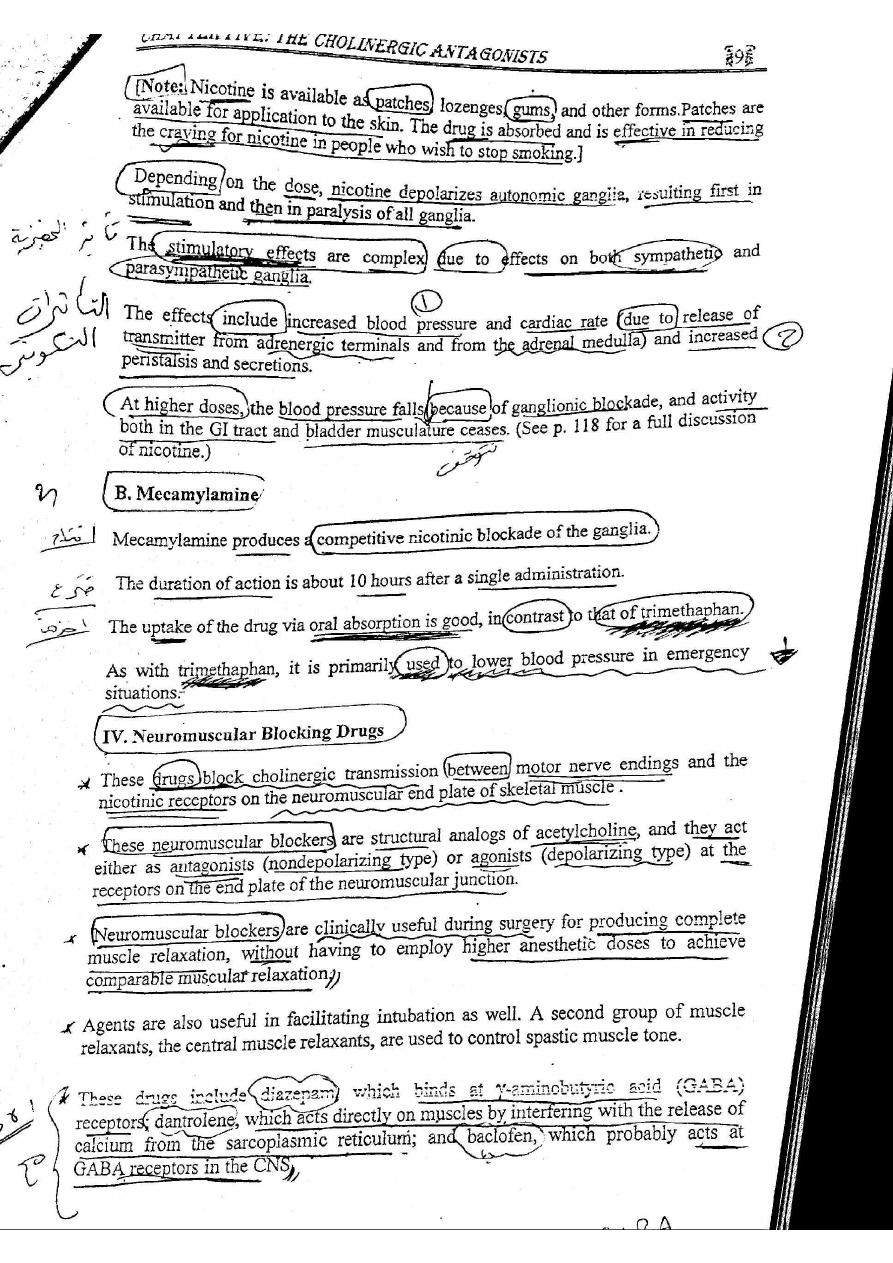 CHAPTER FIVE: THE CHOLINERGIC ANTAGONISTS
[Note: Nicotine is available as patches, lozenges, gums, and other forms.Patches are
available for application to the skin. The drug is absorbed and is effective in reducing
the craving for nicotine in people who wish to stop smoking.]
Depending on the dose, nicotine depolarizes autonomic ganglia, resulting first in
stimulation and then in paralysis of all ganglia.
The stimulatory effects are complex due to effects on both sympathetic and
parasympathetic ganglia.
1
The effects include increased blood pressure and cardiac rate (due to release of
transmitter from adrenergic terminals and from the adrenal medulla) and increased
2
peristalsis and secretions.
At higher doses, the blood pressure falls because of ganglionic blockade, and activity
both in the GI tract and bladder musculature ceases. (See p. 118 for a full discussion
of nicotine.)
تتوقف
B. Mecamylamine
Mecamylamine produces a competitive nicotinic blockade of the ganglia.
The duration of action is about 10 hours after a single administration.
The uptake of the drug via oral absorption is good, in contrast to that of trimethaphan.
As with trimethaphan, it is primarily used to lower blood pressure in emergency
situations.
IV. Neuromuscular Blocking Drugs
These drugs block cholinergic transmission between motor nerve endings and the
nicotinic receptors on the neuromuscular end plate of skeletal muscle .
These neuromuscular blockers are structural analogs of acetylcholine, and they act
either as antagonists (nondepolarizing type) or agonists (depolarizing type) at the
receptors on the end plate of the neuromuscular junction.
Neuromuscular blockers are clinically useful during surgery for producing complete
muscle relaxation, without having to employ higher anesthetic doses to achieve
comparable muscular relaxation,
Agents are also useful in facilitating intubation as well. A second group of muscle
relaxants, the central muscle relaxants, are used to control spastic muscle tone.
These drugs include diazepam, which binds at γ-aminobutyric acid (GABA)
receptors; dantrolene, which acts directly on muscles by interfering with the release of
calcium from the sarcoplasmic reticulum; and baclofen, which probably acts at
GABA receptors in the CNS,